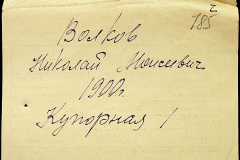 2
185
Волков
Николай Моисеевич
1900г.
Купорная 1